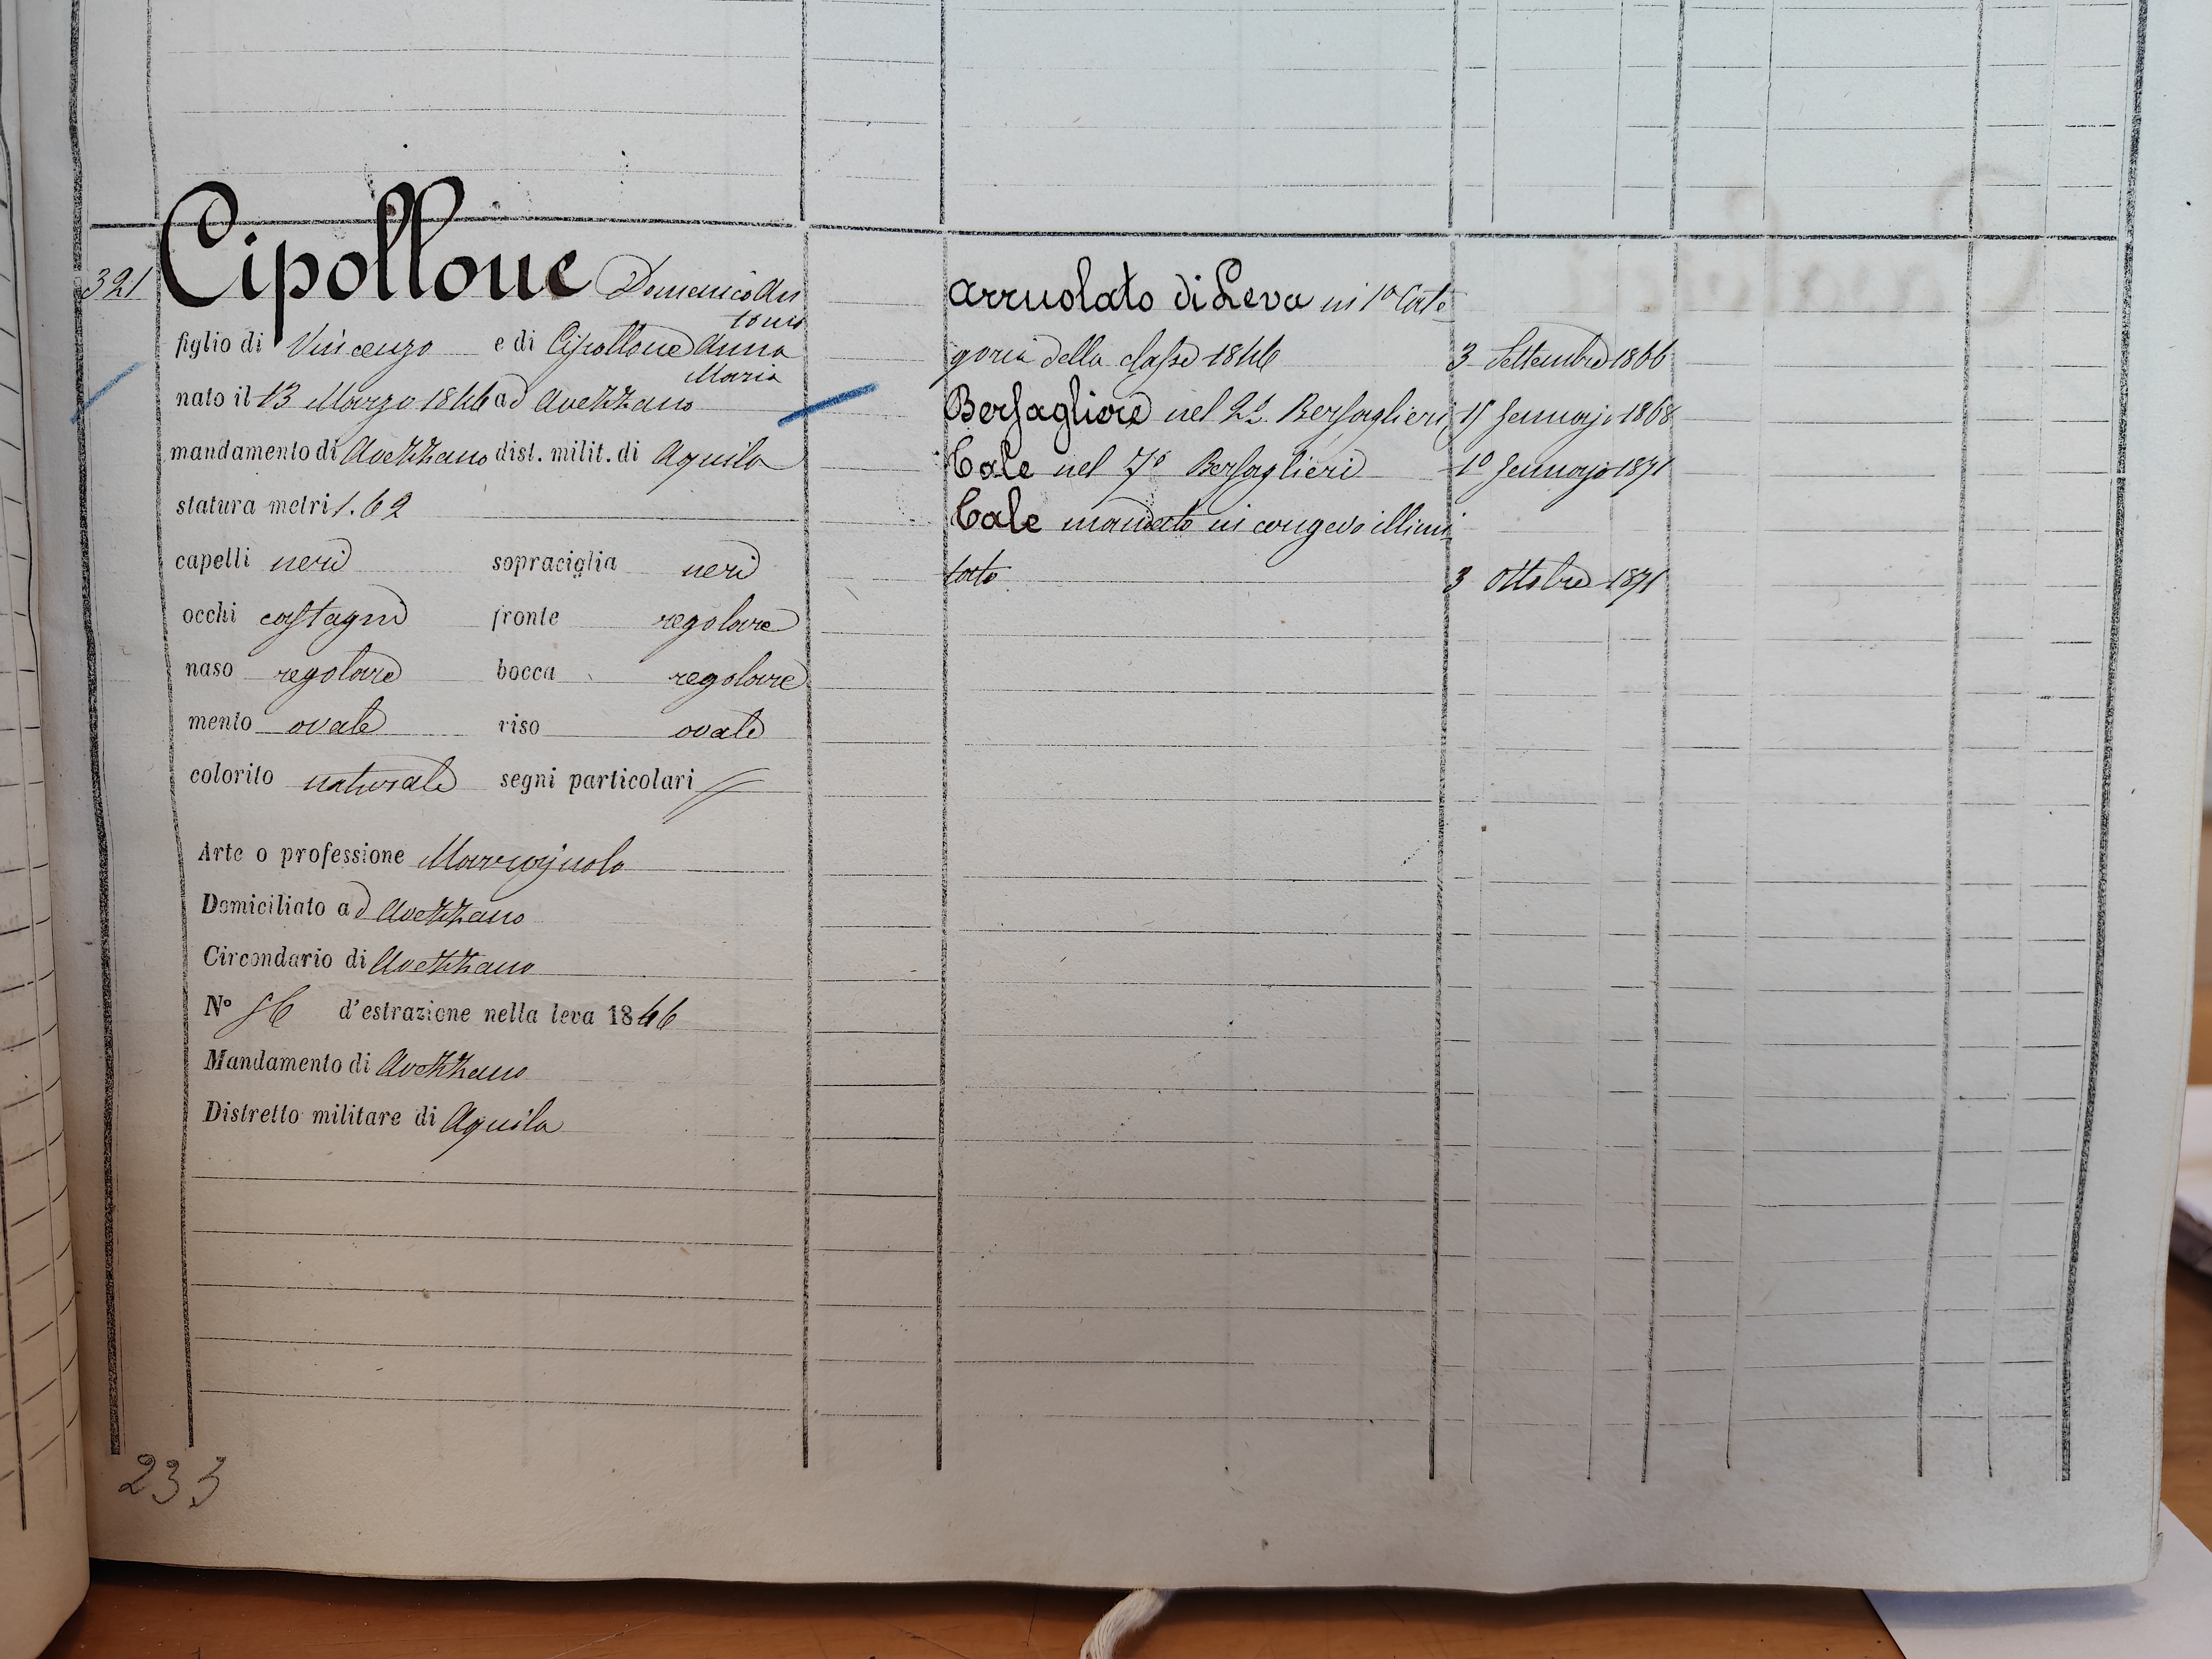 321 Cipollone Domenico An
tonio
figlio di Vincenzo e di Cipollone Anna
Maria
nato il 13 Marzo 1846 ad Avezzano
mandamento di Avezzano dist. milit. di Aquila
statura metri 1.62
capelli neri sopraciglia neri
occhi castagni fronte regolare
naso regolare bocca regolare
mento ovale viso ovale
colorito naturale segni particolari //
Arte o professione
Domiciliato ad Avezzano
Circondario di Avezzano
N° 56 d'estrazione nella leva 1846
Mandamento di Avezzano
Distretto militare di Aquila
Arruolato di Leva in 1a Cate
goria della classe 1846 3 Settembre 1866
Bersagliere nel Bersaglieri Gennajo 1868
Tale nel 7° Bersaglieri 1° Gennajo 1871
Tale mandato in congedo illimi
tato 3 Ottobre 1871
233